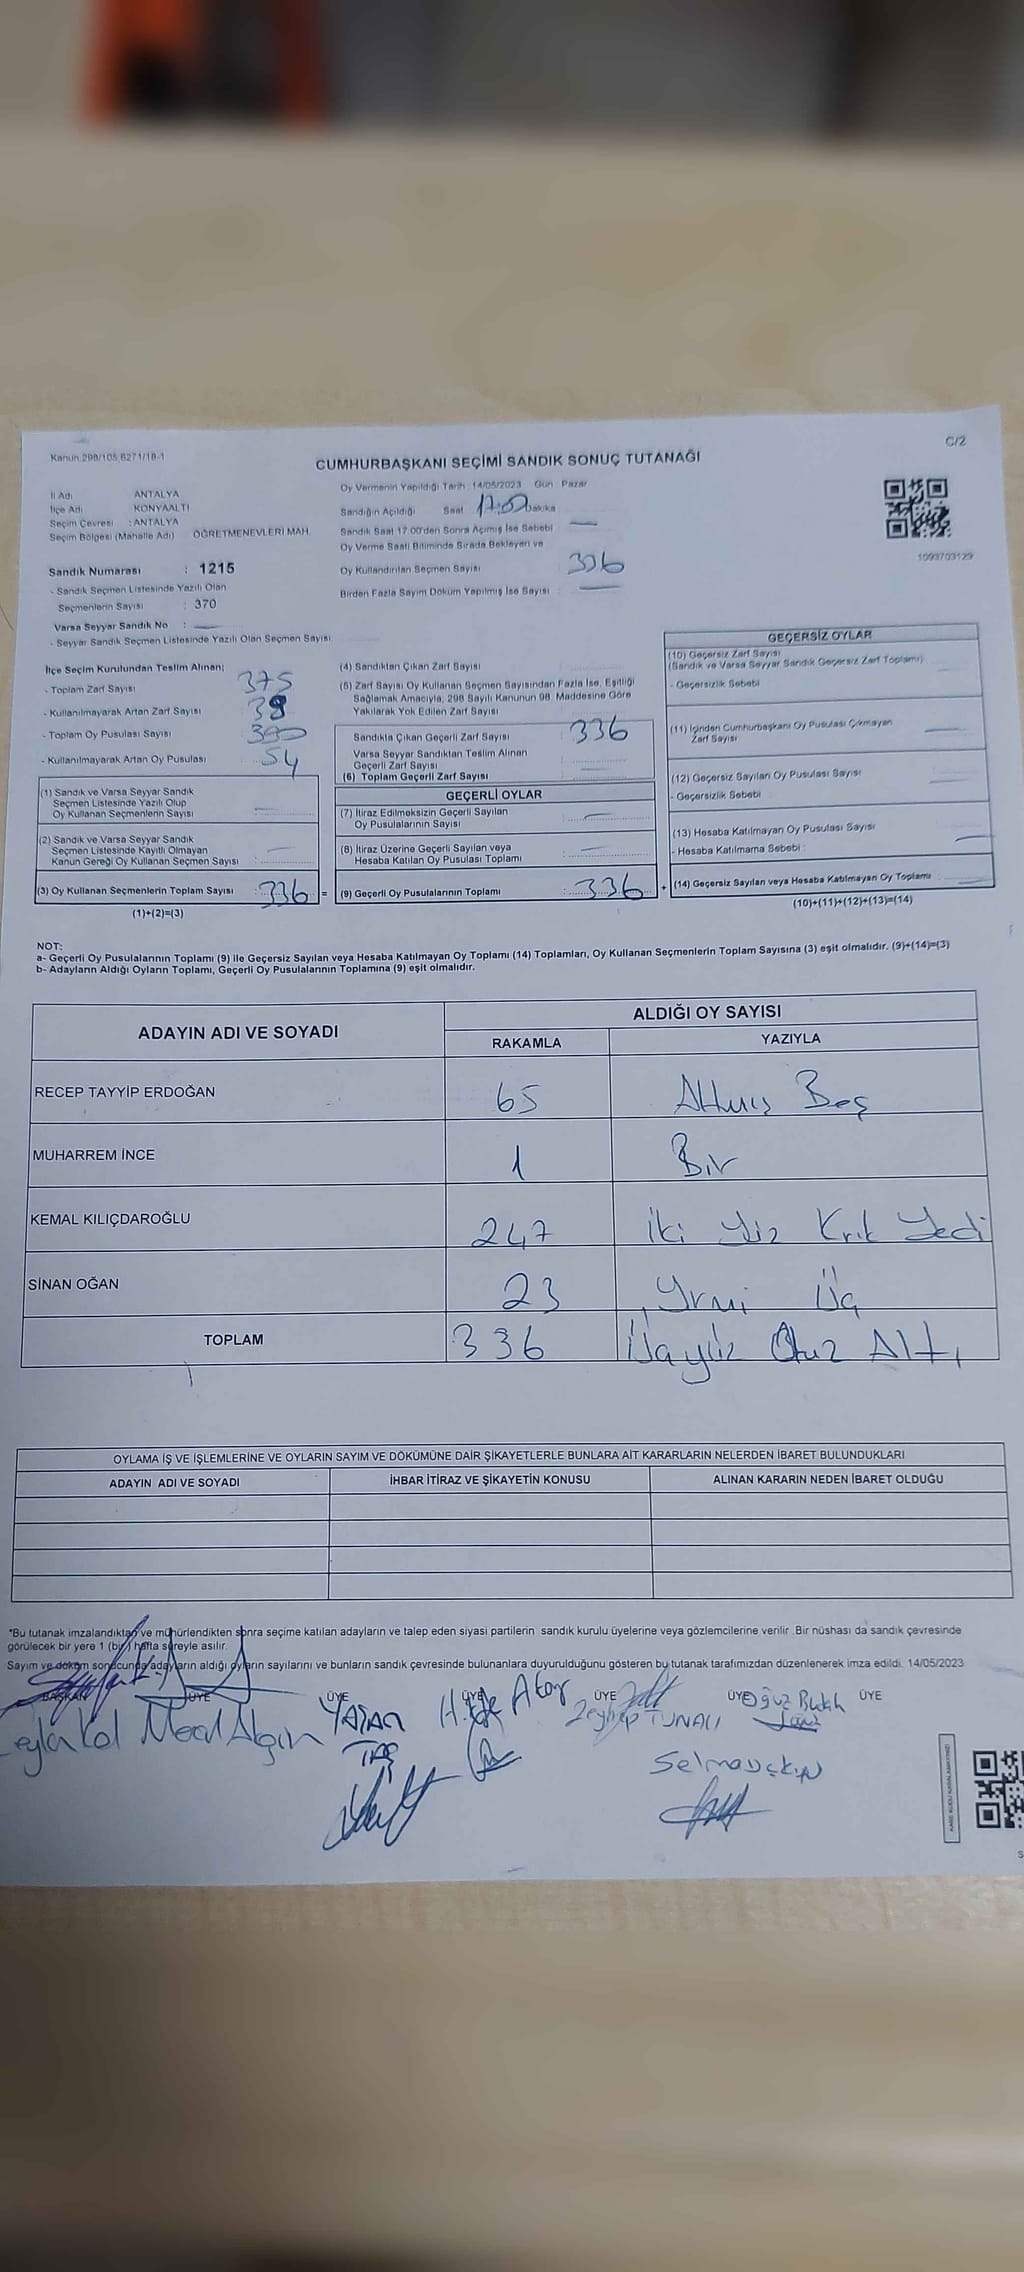 Kanun 298/105,6271/18-1
C/2
CUMHURBAŞKANI SEÇİMİ SANDIK SONUÇ TUTANAĞI
İl Adı ANTALYA
İlçe Adı KONYAALTI
Seçim Çevresi : ANTALYA
Seçim Bölgesi (Mahalle Adı) ÖĞRETMENEVLERİ MAH.
Oy Vermenin Yapıldığı Tarih :14/05/2023 Gün : Pazar
Sandığın Açıldığı Saat 17:00 Dakika
Sandık Saat 17.00'den Sonra Açımış İse Sebebi
Oy Verme Saati Bitiminde Sırada Bekleyen ve
Oy Kullandırılan Seçmen Sayısı 336
Birden Fazla Sayım Döküm Yapılmış İse Sayısı
1093703129
Sandık Numarası : 1215
- Sandık Seçmen Listesinde Yazılı Olan
Seçmenlerin Sayısı : 370
Varsa Seyyar Sandık No :
- Seyyar Sandık Seçmen Listesinde Yazılı Olan Seçmen Sayısı:
İlçe Seçim Kurulundan Teslim Alınan;
- Toplam Zarf Sayısı 375
- Kullanılmayarak Artan Zarf Sayısı
- Toplam Oy Pusulası Sayısı
- Kullanılmayarak Artan Oy Pusulası 54
(1) Sandık ve Varsa Seyyar Sandık
Seçmen Listesinde Yazılı Olup
Oy Kullanan Seçmenlerin Sayısı
(2) Sandık ve Varsa Seyyar Sandık
Seçmen Listesinde Kayıtlı Olmayan
Kanun Gereği Oy Kullanan Seçmen Sayısı
(3) Oy Kullanan Seçmenlerin Toplam Sayısı 336 =
(1)+(2)=(3)
(4) Sandıktan Çıkan Zarf Sayısı
(5) Zarf Sayısı Oy Kullanan Seçmen Sayısından Fazla İse, Eşitliği
Sağlamak Amacıyla; 298 Sayılı Kanunun 98. Maddesine Göre
Yakılarak Yok Edilen Zarf Sayısı
Sandıkta Çıkan Geçerli Zarf Sayısı 336
Varsa Seyyar Sandıktan Teslim Alınan
Geçerli Zarf Sayısı
(6) Toplam Geçerli Zarf Sayısı
GEÇERLİ OYLAR
(7) İtiraz Edilmeksizin Geçerli Sayılan
Oy Pusulalarının Sayısı
(8) İtiraz Üzerine Geçerli Sayılan veya
Hesaba Katılan Oy Pusulası Toplamı
(9) Geçerli Oy Pusulalarının Toplamı 336 +
GEÇERSİZ OYLAR
(10) Geçersiz Zarf Sayısı
(Sandık ve Varsa Seyyar Sandık Geçersiz Zarf Toplamı)
- Geçersizlik Sebebi
(11) İçinden Cumhurbaşkanı Oy Pusulası Çıkmayan
Zarf Sayısı
(12) Geçersiz Sayılan Oy Pusulası Sayısı
- Geçersizlik Sebebi
(13) Hesaba Katılmayan Oy Pusulası Sayısı
- Hesaba Katılmama Sebebi :
(14) Geçersiz Sayılan veya Hesaba Katılmayan Oy Toplamı
(10)+(11)+(12)+(13)=(14)
NOT:
a- Geçerli Oy Pusulalarının Toplamı (9) ile Geçersiz Sayılan veya Hesaba Katılmayan Oy Toplamı (14) Toplamları, Oy Kullanan Seçmenlerin Toplam Sayısına (3) eşit olmalıdır. (9)+(14)=(3)
b- Adayların Aldığı Oyların Toplamı, Geçerli Oy Pusulalarının Toplamına (9) eşit olmalıdır.
ADAYIN ADI VE SOYADI ALDIĞI OY SAYISI
RAKAMLA YAZIYLA
RECEP TAYYİP ERDOĞAN 65 Altmış Beş
MUHARREM İNCE 1 Bir
KEMAL KILIÇDAROĞLU 247 İki Yüz Kırk Yedi
SİNAN OĞAN 23 Yirmi Üç
TOPLAM 336 Üçyüz Otuz Altı
OYLAMA İŞ VE İŞLEMLERİNE VE OYLARIN SAYIM VE DÖKÜMÜNE DAİR ŞİKAYETLERLE BUNLARA AİT KARARLARIN NELERDEN İBARET BULUNDUKLARI
ADAYIN ADI VE SOYADI İHBAR İTİRAZ VE ŞİKAYETİN KONUSU ALINAN KARARIN NEDEN İBARET OLDUĞU
*Bu tutanak imzalandıktan ve mühürlendikten sonra seçime katılan adayların ve talep eden siyasi partilerin sandık kurulu üyelerine veya gözlemcilerine verilir. Bir nüshası da sandık çevresinde
görülecek bir yere 1 (bir) hafta süreyle asılır.
Sayım ve döküm sonucunda adayların aldığı oyların sayılarını ve bunların sandık çevresinde bulunanlara duyurulduğunu gösteren bu tutanak tarafımızdan düzenlenerek imza edildi. 14/05/2023
BAŞKAN ÜYE ÜYE ÜYE ÜYE ÜYE ÜYE
Zeynep TUNALI